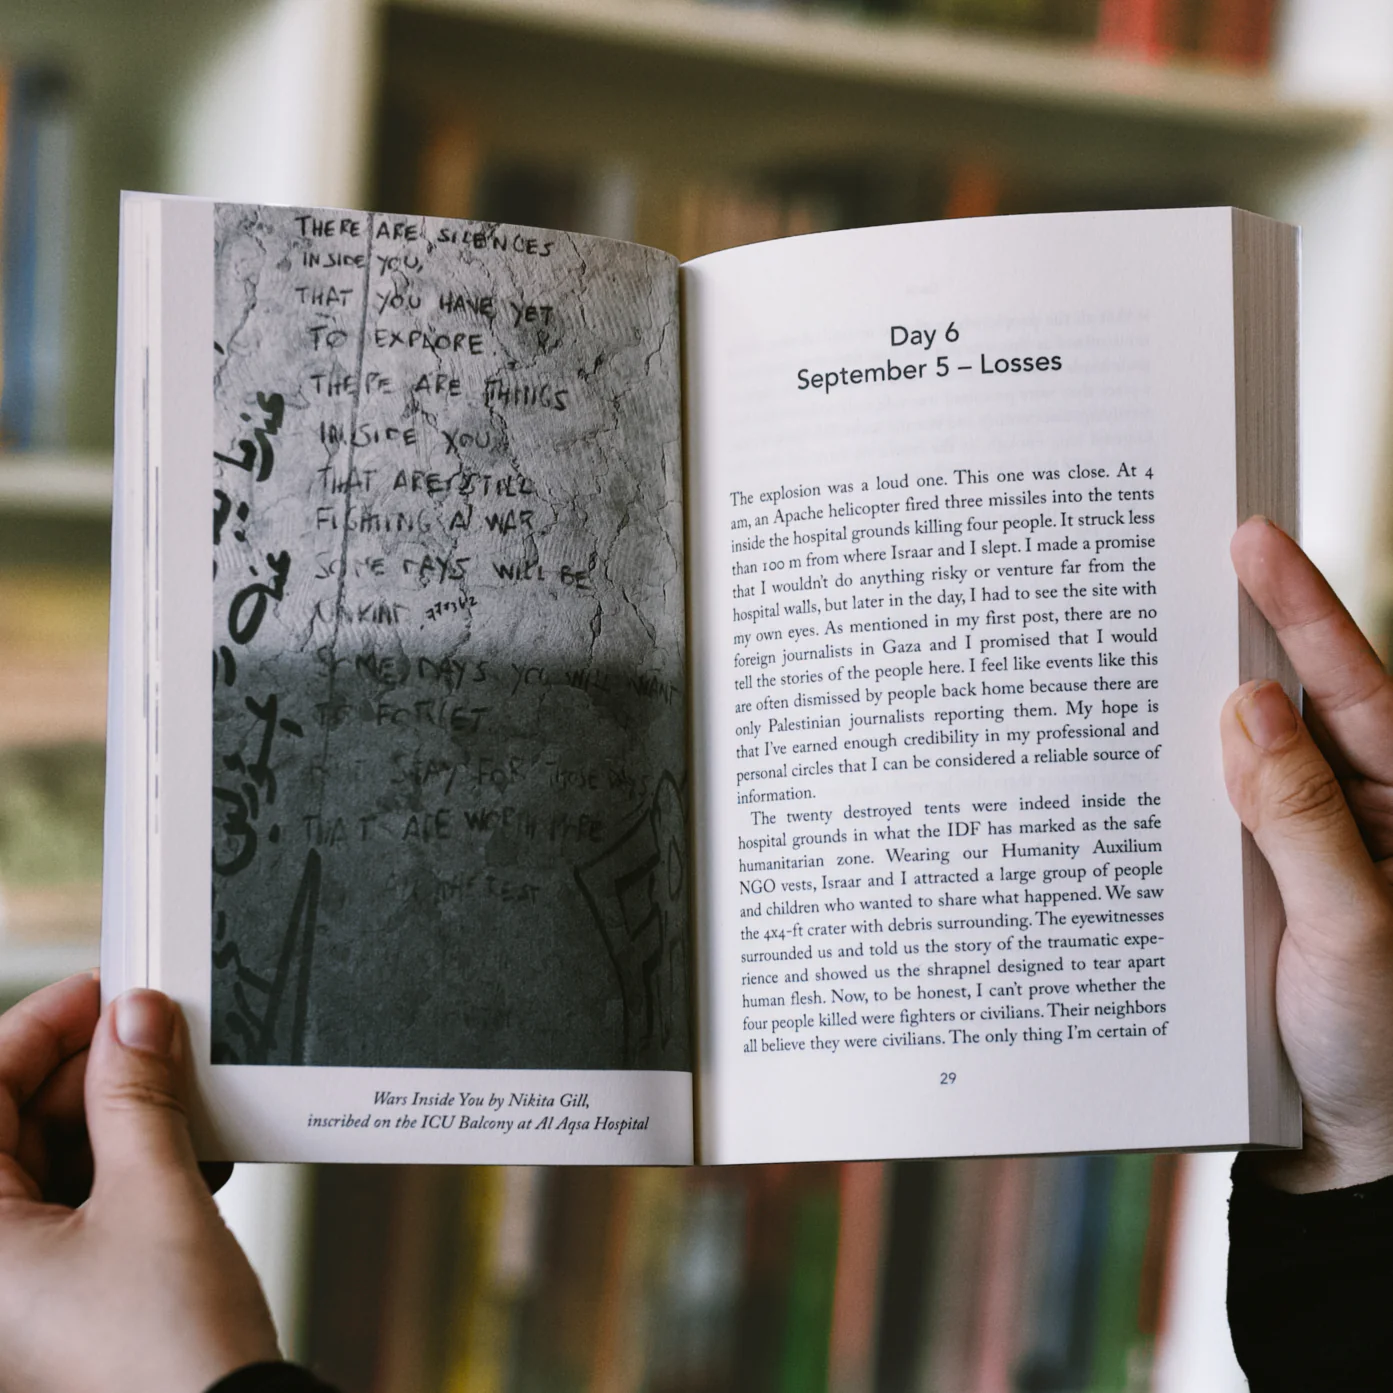 THERE ARE SILENCES
INSIDE YOU,
THAT YOU HAVE YET
TO EXPLORE.
THERE ARE THINGS
INSIDE YOU
THAT ARE STILL
FIGHTING A WAR
SOME DAYS WILL BE
UNKIND
SOME DAYS YOU WILL WANT
TO FORGET
STAY FOR THOSE DAYS
THAT ARE WORTH
THE REST
Wars Inside You by Nikita Gill,
inscribed on the ICU Balcony at Al Aqsa Hospital
Day 6
September 5 – Losses
The explosion was a loud one. This one was close. At 4
am, an Apache helicopter fired three missiles into the tents
inside the hospital grounds killing four people. It struck less
than 100 m from where Israar and I slept. I made a promise
that I wouldn't do anything risky or venture far from the
hospital walls, but later in the day, I had to see the site with
my own eyes. As mentioned in my first post, there are no
foreign journalists in Gaza and I promised that I would
tell the stories of the people here. I feel like events like this
are often dismissed by people back home because there are
only Palestinian journalists reporting them. My hope is
that I've earned enough credibility in my professional and
personal circles that I can be considered a reliable source of
information.
The twenty destroyed tents were indeed inside the
hospital grounds in what the IDF has marked as the safe
humanitarian zone. Wearing our Humanity Auxilium
NGO vests, Israar and I attracted a large group of people
and children who wanted to share what happened. We saw
the 4x4-ft crater with debris surrounding. The eyewitnesses
surrounded us and told us the story of the traumatic expe-
rience and showed us the shrapnel designed to tear apart
human flesh. Now, to be honest, I can't prove whether the
four people killed were fighters or civilians. Their neighbors
all believe they were civilians. The only thing I'm certain of
29